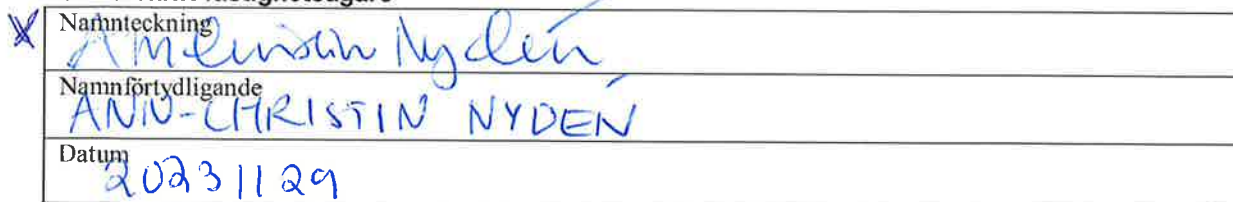 Namnteckning
Ann-Christin Nydén
Namnförtydligande
ANN-CHRISTIN NYDÉN
Datum
20231129